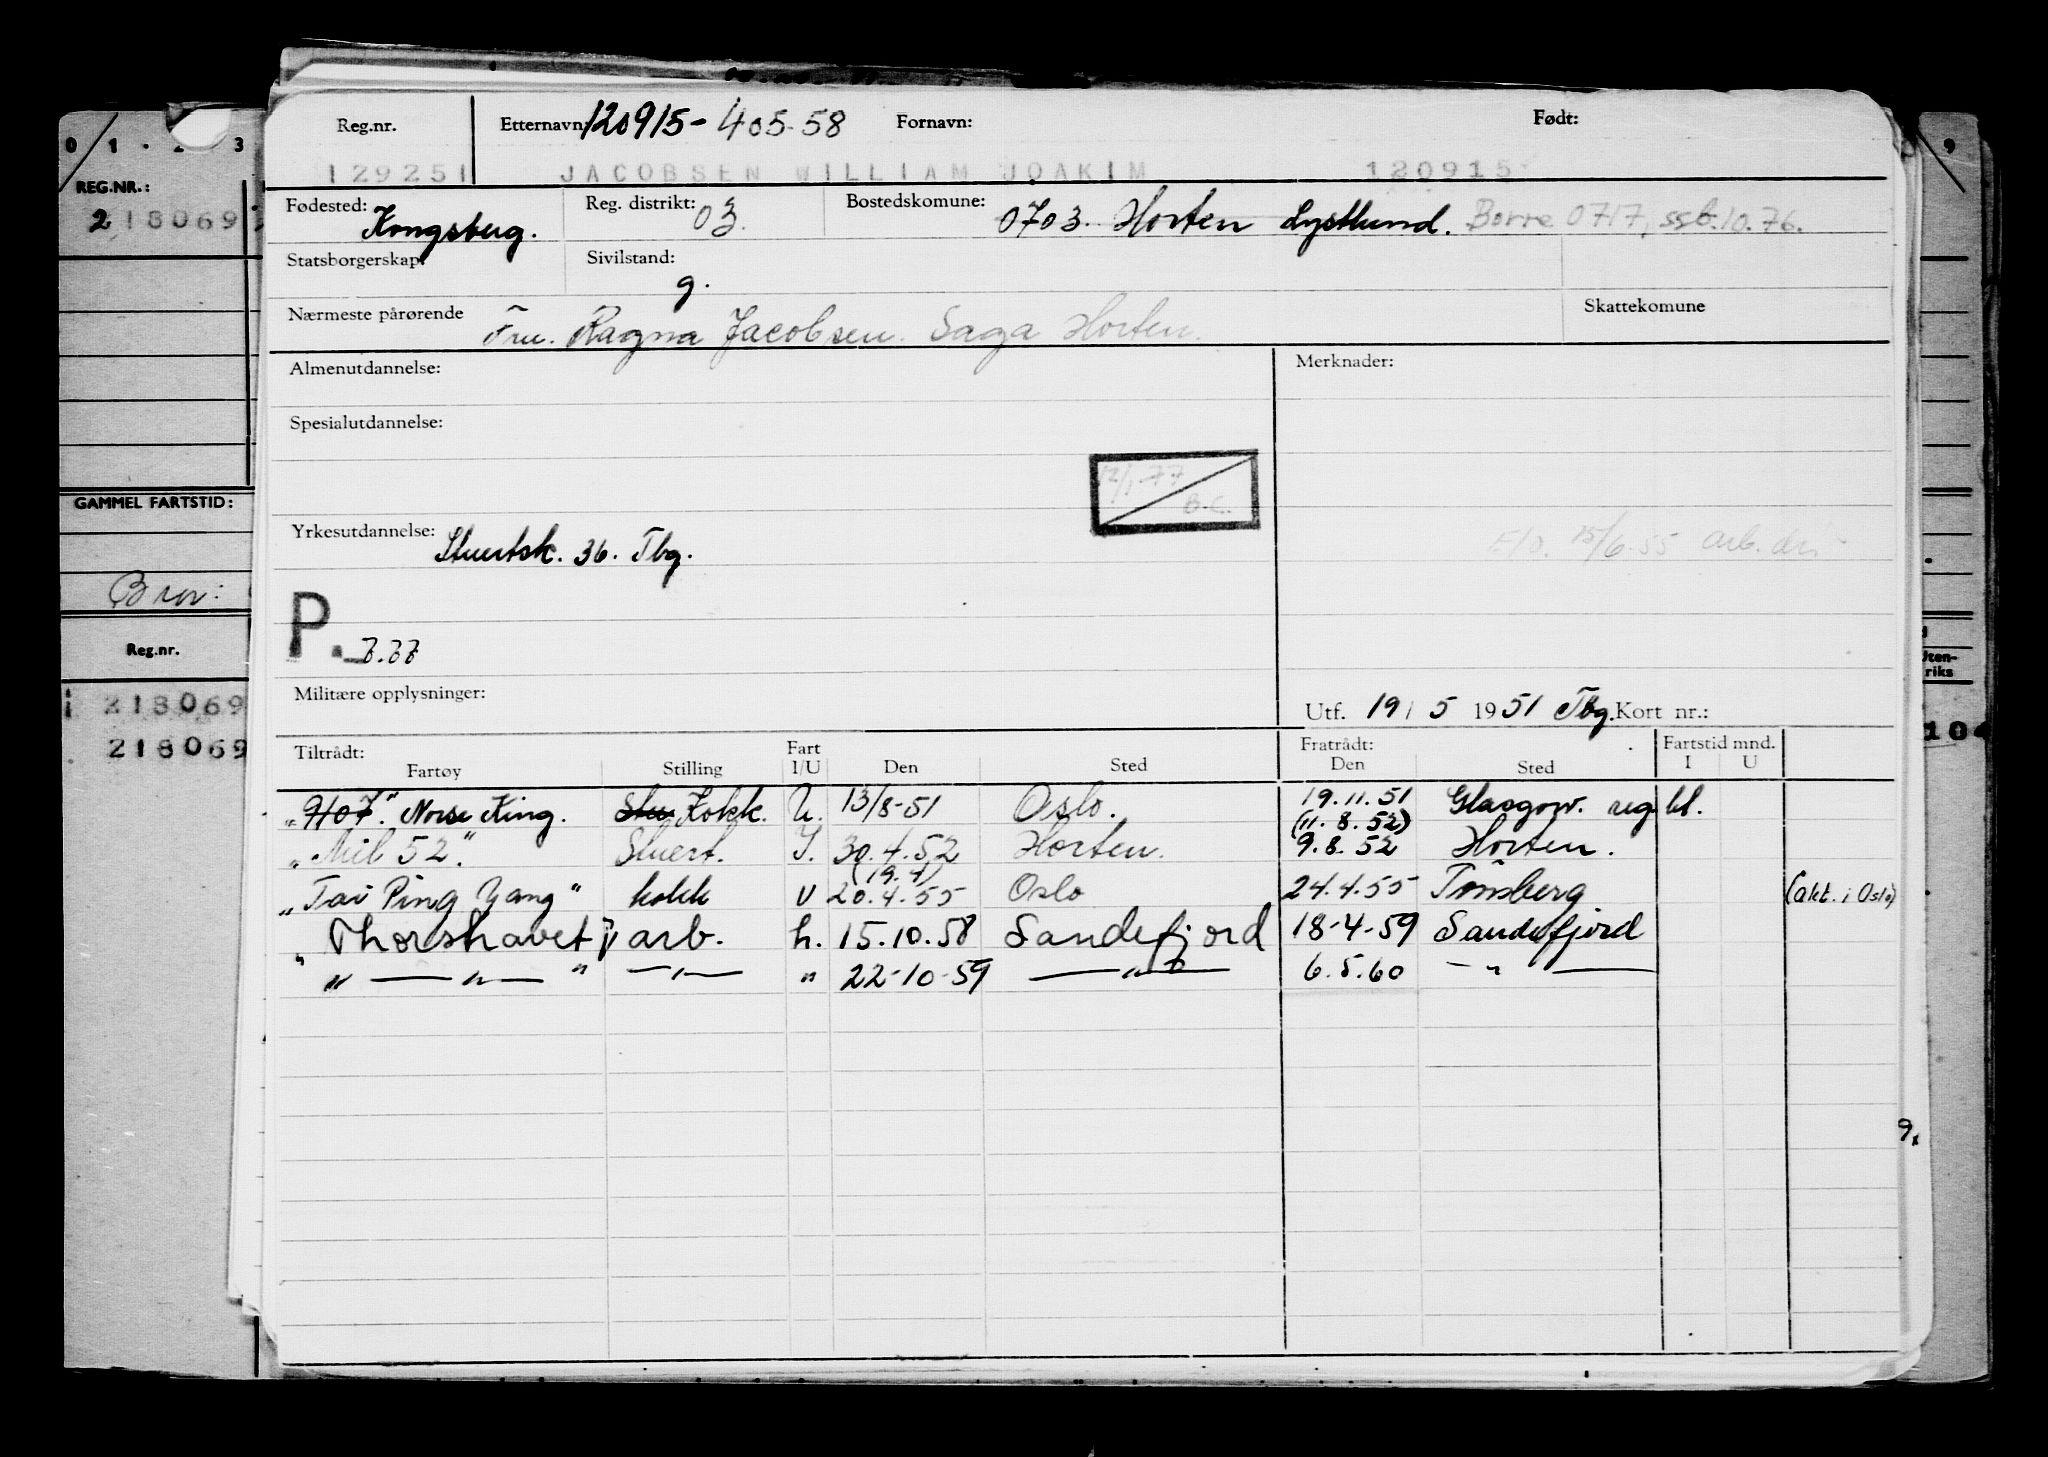 0 1 . 2 3
REG.NR.:
218069
GAMMEL FARTSTID:
Reg.nr.
218069
218069
Reg.nr. Etternavn: 120915-405-58 Fornavn: Født:
129251 JACOBSEN WILLIAM JOAKIM 120915
Fødested: Kongsberg. Reg. distrikt: 03. Bostedskomune: 0703. Horten Lystlund. Borre 0717, ssb.10.76.
Statsborgerskap: Sivilstand: g.
Nærmeste pårørende Fru. Ragna Jacobsen. Saga Horten. Skattekomune
Almenutdannelse: Merknader:
Spesialutdannelse:
12/1-77
B.C.
Yrkesutdannelse: Stuertsk. 36. Tbg. 15/6-55 arb.
P. 7.77
Militære opplysninger: Utf. 19/5 1951 Tbg. Kort nr.:
Tiltrådt: Fart Fratrådt: Fartstid mnd.
Fartøy Stilling I/U Den Sted Den Sted I U
Norse King. Kokk. U. 13/8-51 Oslo. 19.11.51 Glasgow. reg bl.
(11.8.52)
"Mil 52". Stuert. I. 30.4.52 Horten. 9.8.52 Horten.
(19.4)
"Tai Ping Yang" kokk U 20.4.55 Oslo 24.4.55 Tønsberg (akt. i Oslo)
"Thorshavet" arb. h. 15.10.58 Sandefjord 18-4-59 Sandefjord
" — " — " — " — " 22-10-59 — " — 6.5.60 — " —
9
Uten-
riks
104